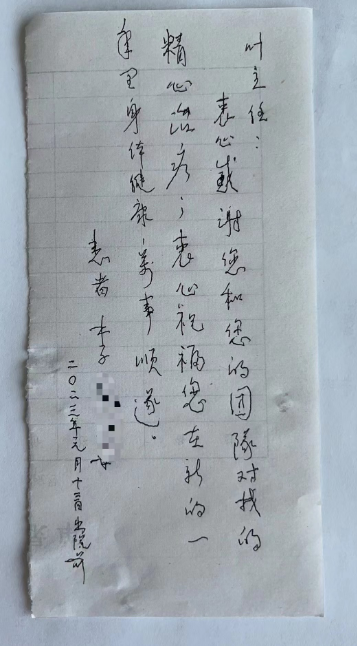 叶主任：
衷心感谢您和您的团隊对我的
精心治疗；衷心祝福您在新的一
年里身体健康；萬事顺遂。
患者 李
二〇二三年元月十 出院前